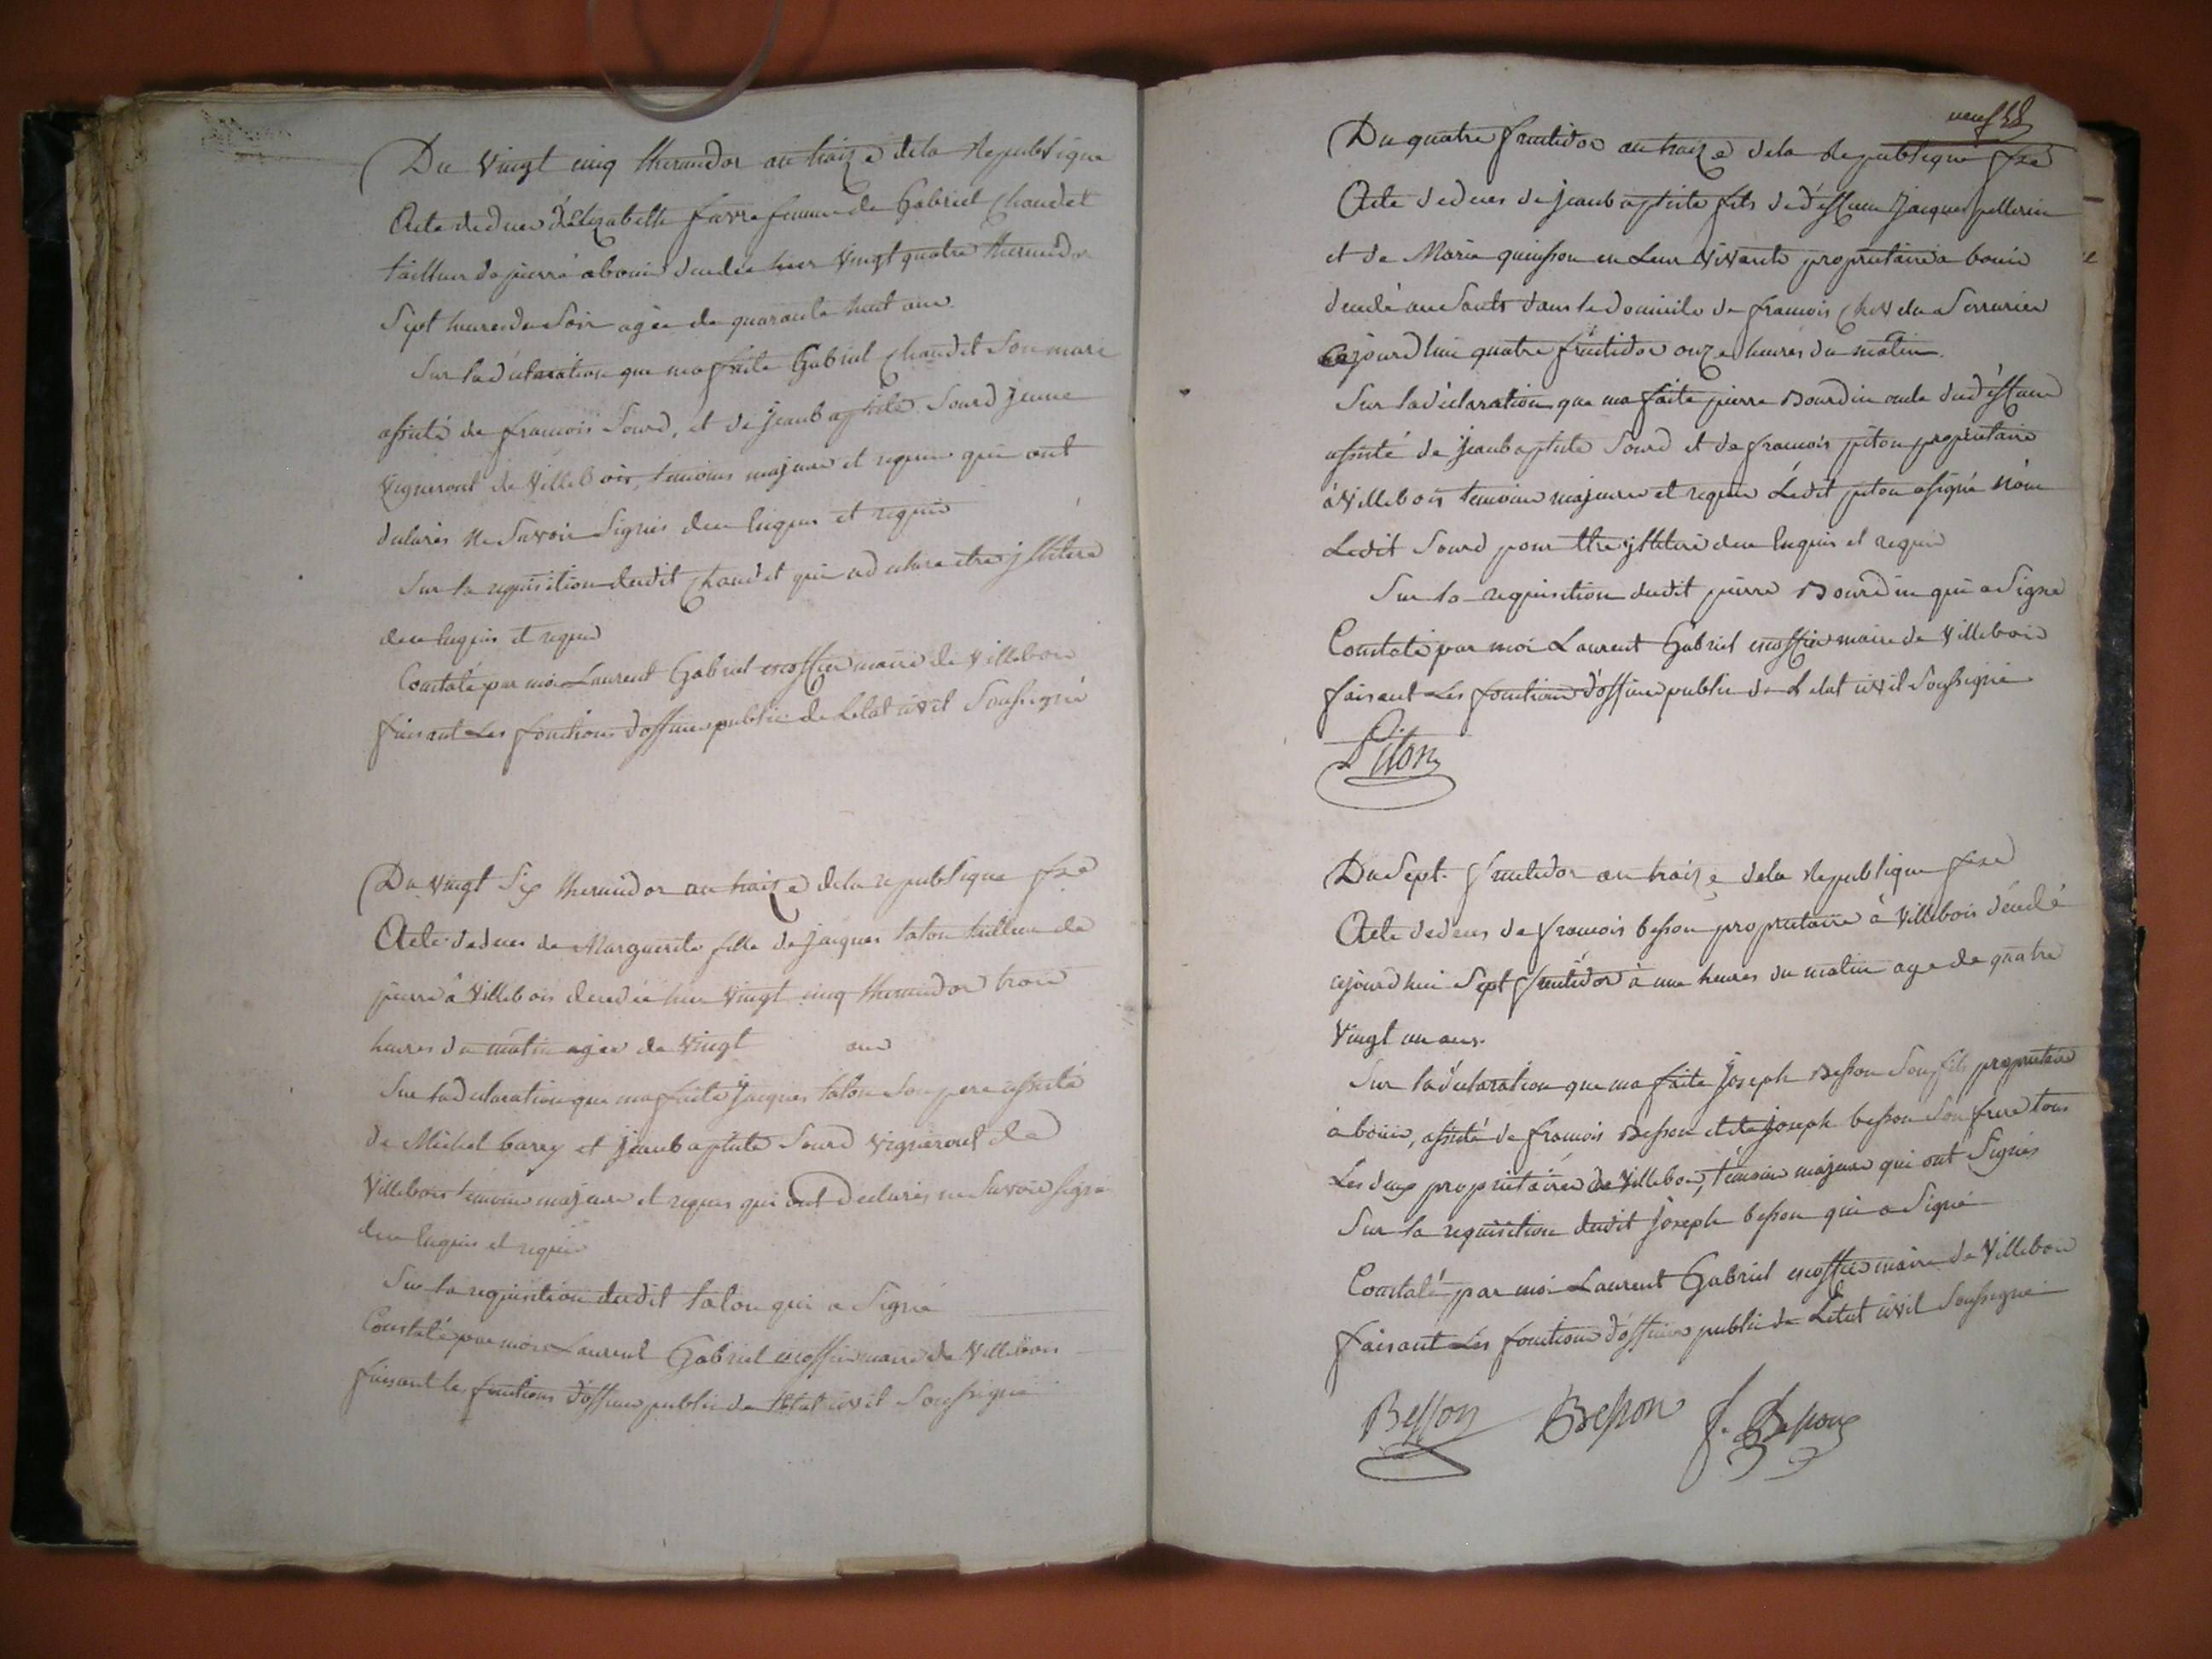 Du Vingt cinq thermidor an traize de la Republique
Acte de deces d'Elizabeth favre femme de Gabriel Chaudet
tailleur de pierre a bouis decedée hier Vingt quatre thermidor
Sept heures du Soir agée de quarante huit ans
Sur la déclaration que ma faite Gabriel Chaudet Son mari
assisté de françois Sourd, et de jean baptiste Sourd jeune
Vigneront de Villebois, temoins majeurs et requis qui ont
déclarés ne Savoir Signés deu Enquis et requis
Sur la requisition dudit Chaudet qui a declare etre jllitéré
deu Enquis et requis
Constaté par moi Laurent Gabriel escoffier maire de Villebois
faisant Les fonctions d'officier public de Letat civil Soussigné
Du Vingt Six thermidor an traize de la republique fse
Acte de deces de Marguerite fille de jacques taton tailleur de
pierre à Villebois decedée hier Vingt cinq thermidor trois
heures du matin agée de Vingt ans
Sur la declaration que ma faite jacques taton Son pere assisté
de Michel barey et jean baptiste Sourd Vigneront de
Villebois temoins majeurs et requis qui ont Declarés ne Savoir signé
deu Enquis et requis
Sur la requisition dudit taton qui a Signé
Constaté par moi Laurent Gabriel escoffier maire de Villebois
faisant les fonctions d'officier public de Letat civil Soussigné
neuf
Du quatre fructidor an traize de la Republique fse
Acte de deces de jean baptiste fils de déffunt Jacques pellerin
et de Marie quinsson en Leur Vivants proprietaire a bouis
decedé au Sault dans le domicile de françois Serrurier
cejourdhui quatre fructidor onze heures du matin.
Sur la déclaration que ma faite pierre Bourdin oncle du déffunt
assisté de jean baptiste Sourd et de françois piton proprietaire
à Villebois temoins majeurs et requis Ledit piton a signé non
Ledit Sourd pour etre jllitéré deu Enquis et requis
Sur la requisition dudit pierre Bourdin qui a Signé
Constaté par moi Laurent Gabriel escoffier maire de Villebois
faisant Les fonctions d'officier public de Letat civil Soussigné
Piton
Du Sept fructidor an traize de la Republique fse
Acte de deces de françois besson proprietaire à Villebois décedé
cejourdhui Sept fructidor à une heures du matin age de quatre
Vingt un ans.
Sur la déclaration que ma faite Joseph Besson Son fils proprietaire
a bouis, assisté de françois Besson et de joseph besson Son frere tous
Les deux proprietaires de Villebois, temoins majeurs qui ont Signés
Sur la requisition dudit joseph besson qui a Signé
Constaté par moi Laurent Gabriel escoffier maire de Villebois
faisant Les fonctions d'officier public de Letat civil Soussigné
Besson Besson f. Besson